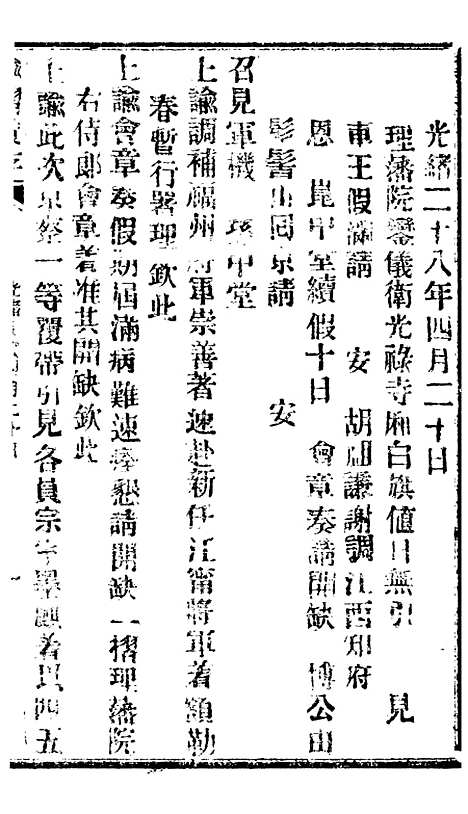 光緒二十八年四月二十日
理藩院鑾儀衛光祿寺廂白旗值日無引　見
車王假滿請　安　胡湘謙謝調江西知府
恩　崑中堂續假十日　會章奏請開缺　博公由
回京請　安
召見軍機　中堂
上諭調補福州將軍崇善著速赴新任江甯將軍着額勒
春暫行署理欽此
上諭會章奏假期屆滿病難速痊懇請開缺一摺理藩院
右侍郎會章着准其開缺欽此
上諭此次京察一等覆帶引見各員宗室着以四五